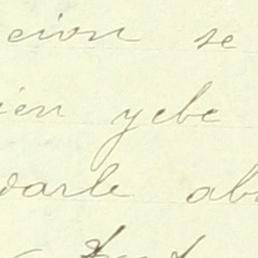 cion se
ien yebe
darle ab